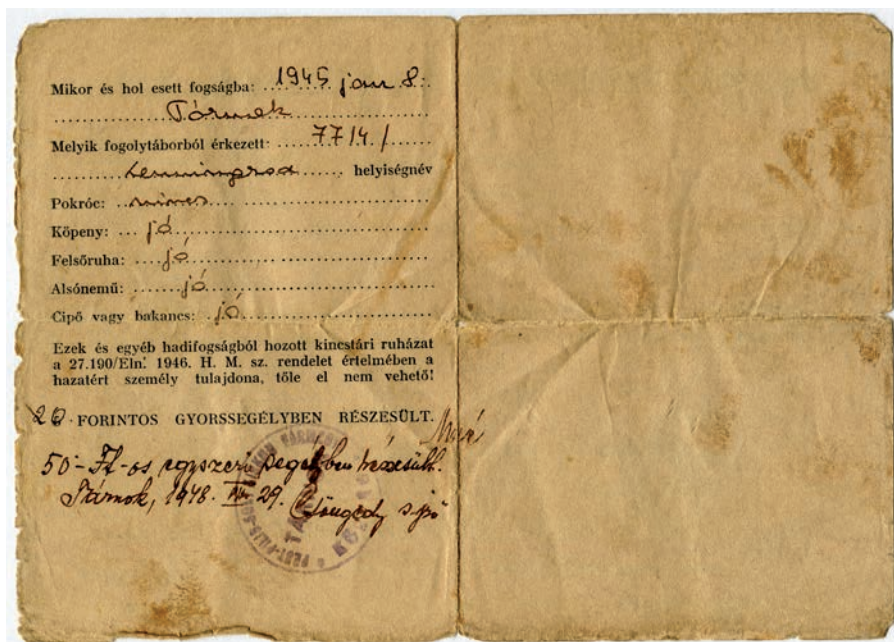 Mikor és hol esett fogságba: 1945 jan 8.
Tárnok
Melyik fogolytáborból érkezett: 7714/
helyiségnév
Pokróc: nincs
Köpeny: jó
Felsőruha: jó
Alsónemű: jó
Cipő vagy bakancs: jó
Ezek és egyéb hadifogságból hozott kincstári ruházat
a 27.190/Eln. 1946. H. M. sz. rendelet értelmében a
hazatért személy tulajdona, tőle el nem vehető!
20 FORINTOS GYORSSEGÉLYBEN RÉSZESÜLT.
50-Ft-os egyszeri segélyben részesült.
Tárnok, 1948. 29.